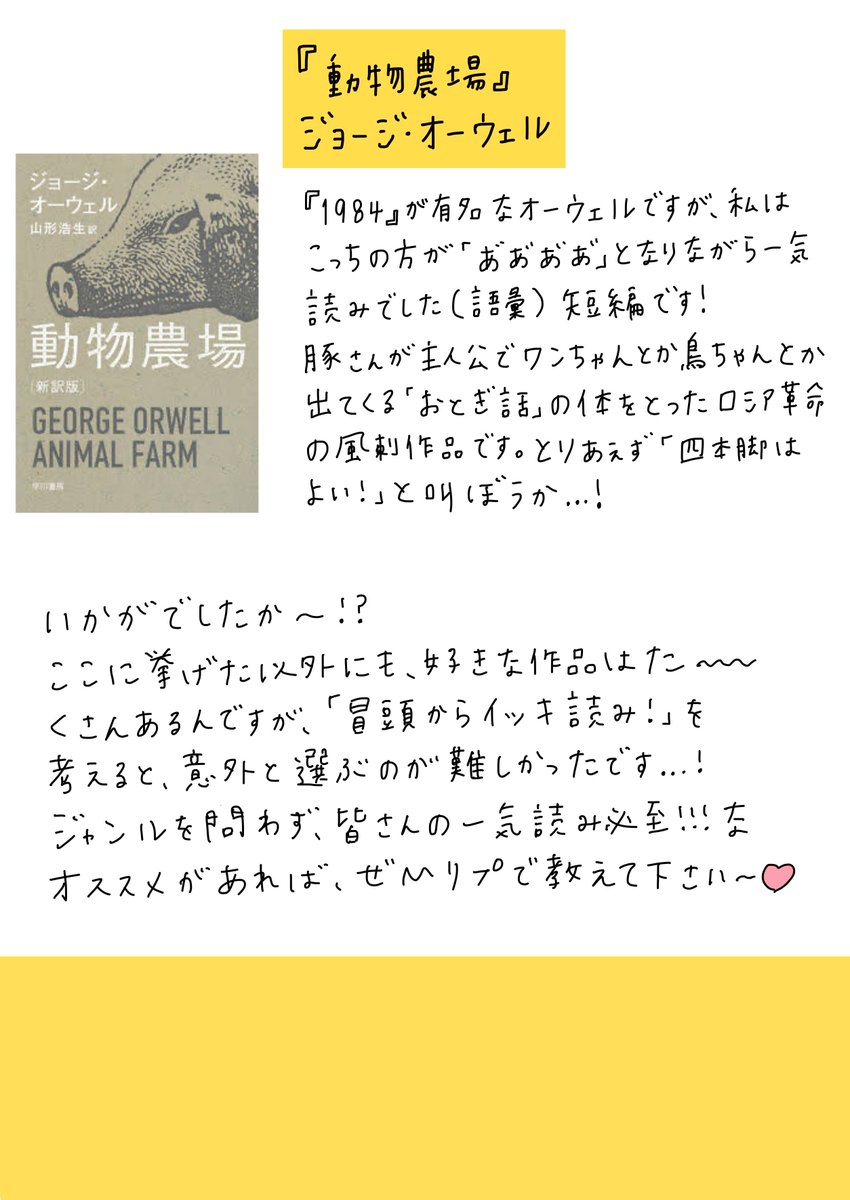 『動物農場』
ジョージ・オーウェル
ジョージ・
オーウェル
山形浩生 訳
動物農場
〔新訳版〕
GEORGE ORWELL
ANIMAL FARM
早川書房
『1984』が有名なオーウェルですが、私は
こっちの方が「あ゛あ゛あ゛あ゛」となりながら一気
読みでした(語彙) 短編です!
豚さんが主人公でワンちゃんとか鳥ちゃんとか
出てくる「おとぎ話」の体をとったロシア革命
の風刺作品です。とりあえず「四本脚は
よい!」と叫ぼうか...!
いかがでしたか〜!?
ここに挙げた以外にも、好きな作品はた〜〜〜
くさんあるんですが、「冒頭からイッキ読み!」を
考えると、意外と選ぶのが難しかったです...!
ジャンルを問わず、皆さんの一気読み必至!!!な
オススメがあれば、ぜひリプで教えて下さい〜